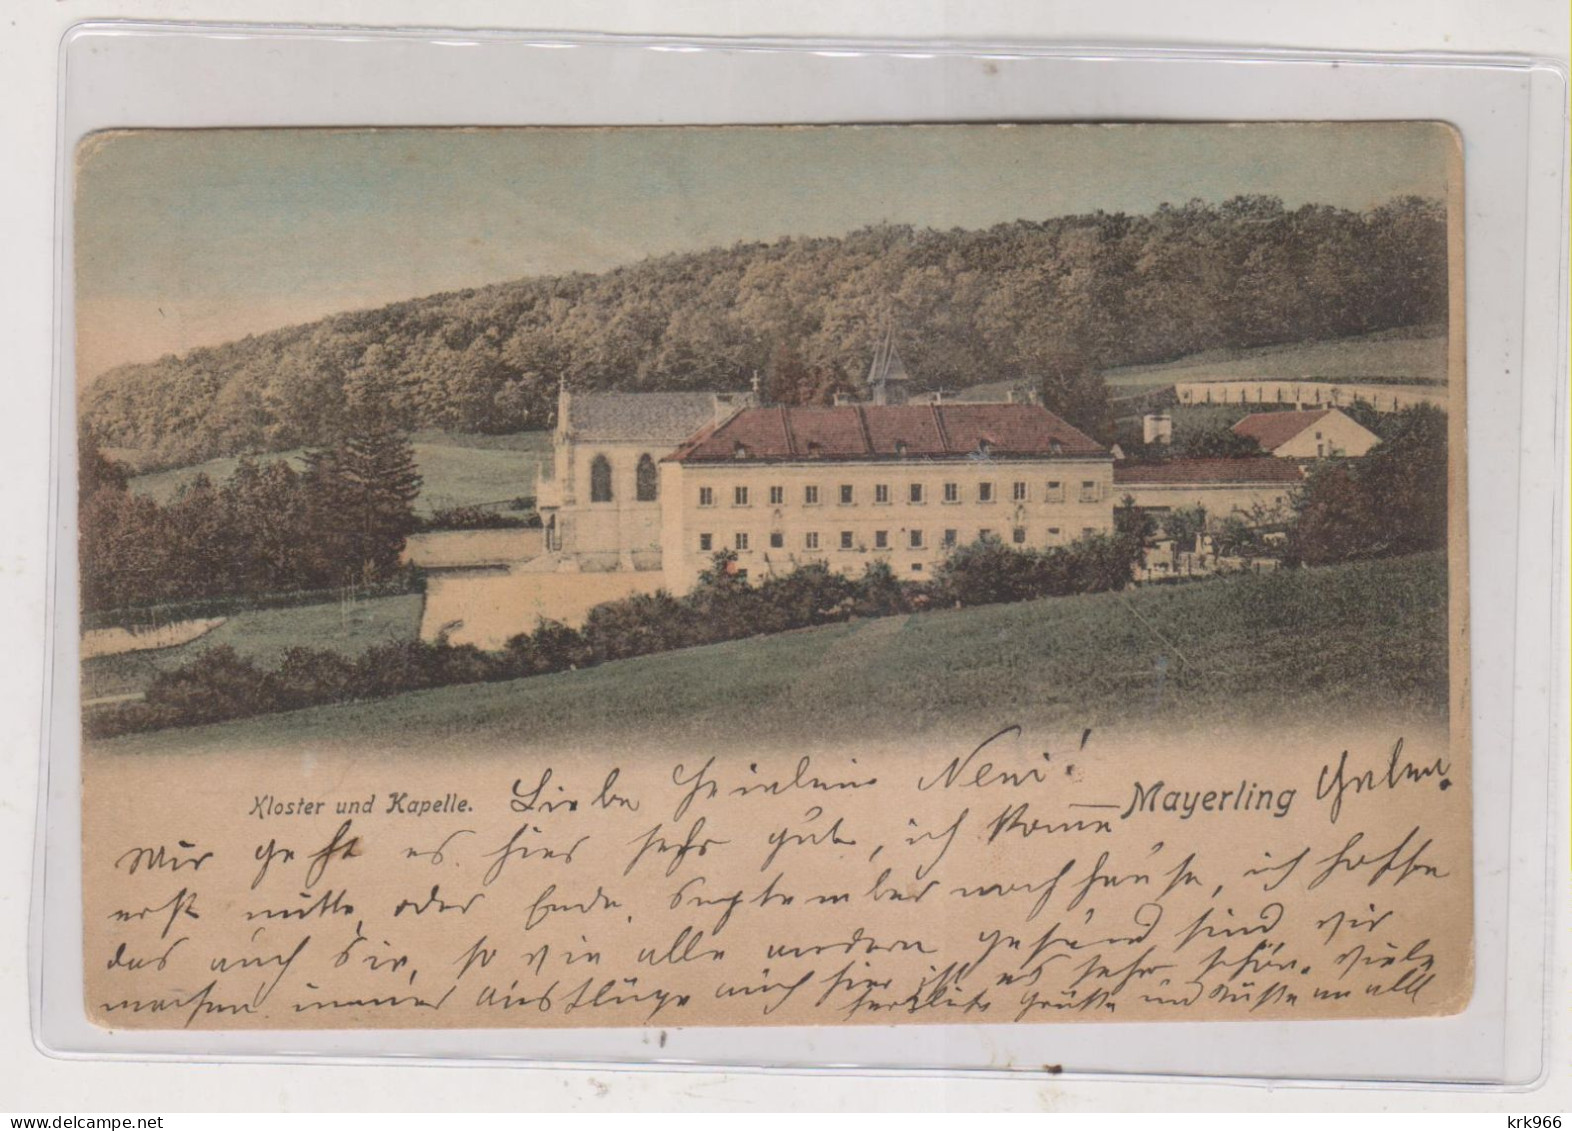 Kloster und Kapelle.
Mayerling
Liebe Fräulein Neni!
Wir geht es hier sehr gut, ich komme
erst mitte oder Ende September nach Hause, ich hoffe
das auch Sie, so wie alle andern gesund sind wir
machen immer Ausflüge auch hier ist es sehr schön. Viele
herzliche Grüße und Küße an alle
krk966